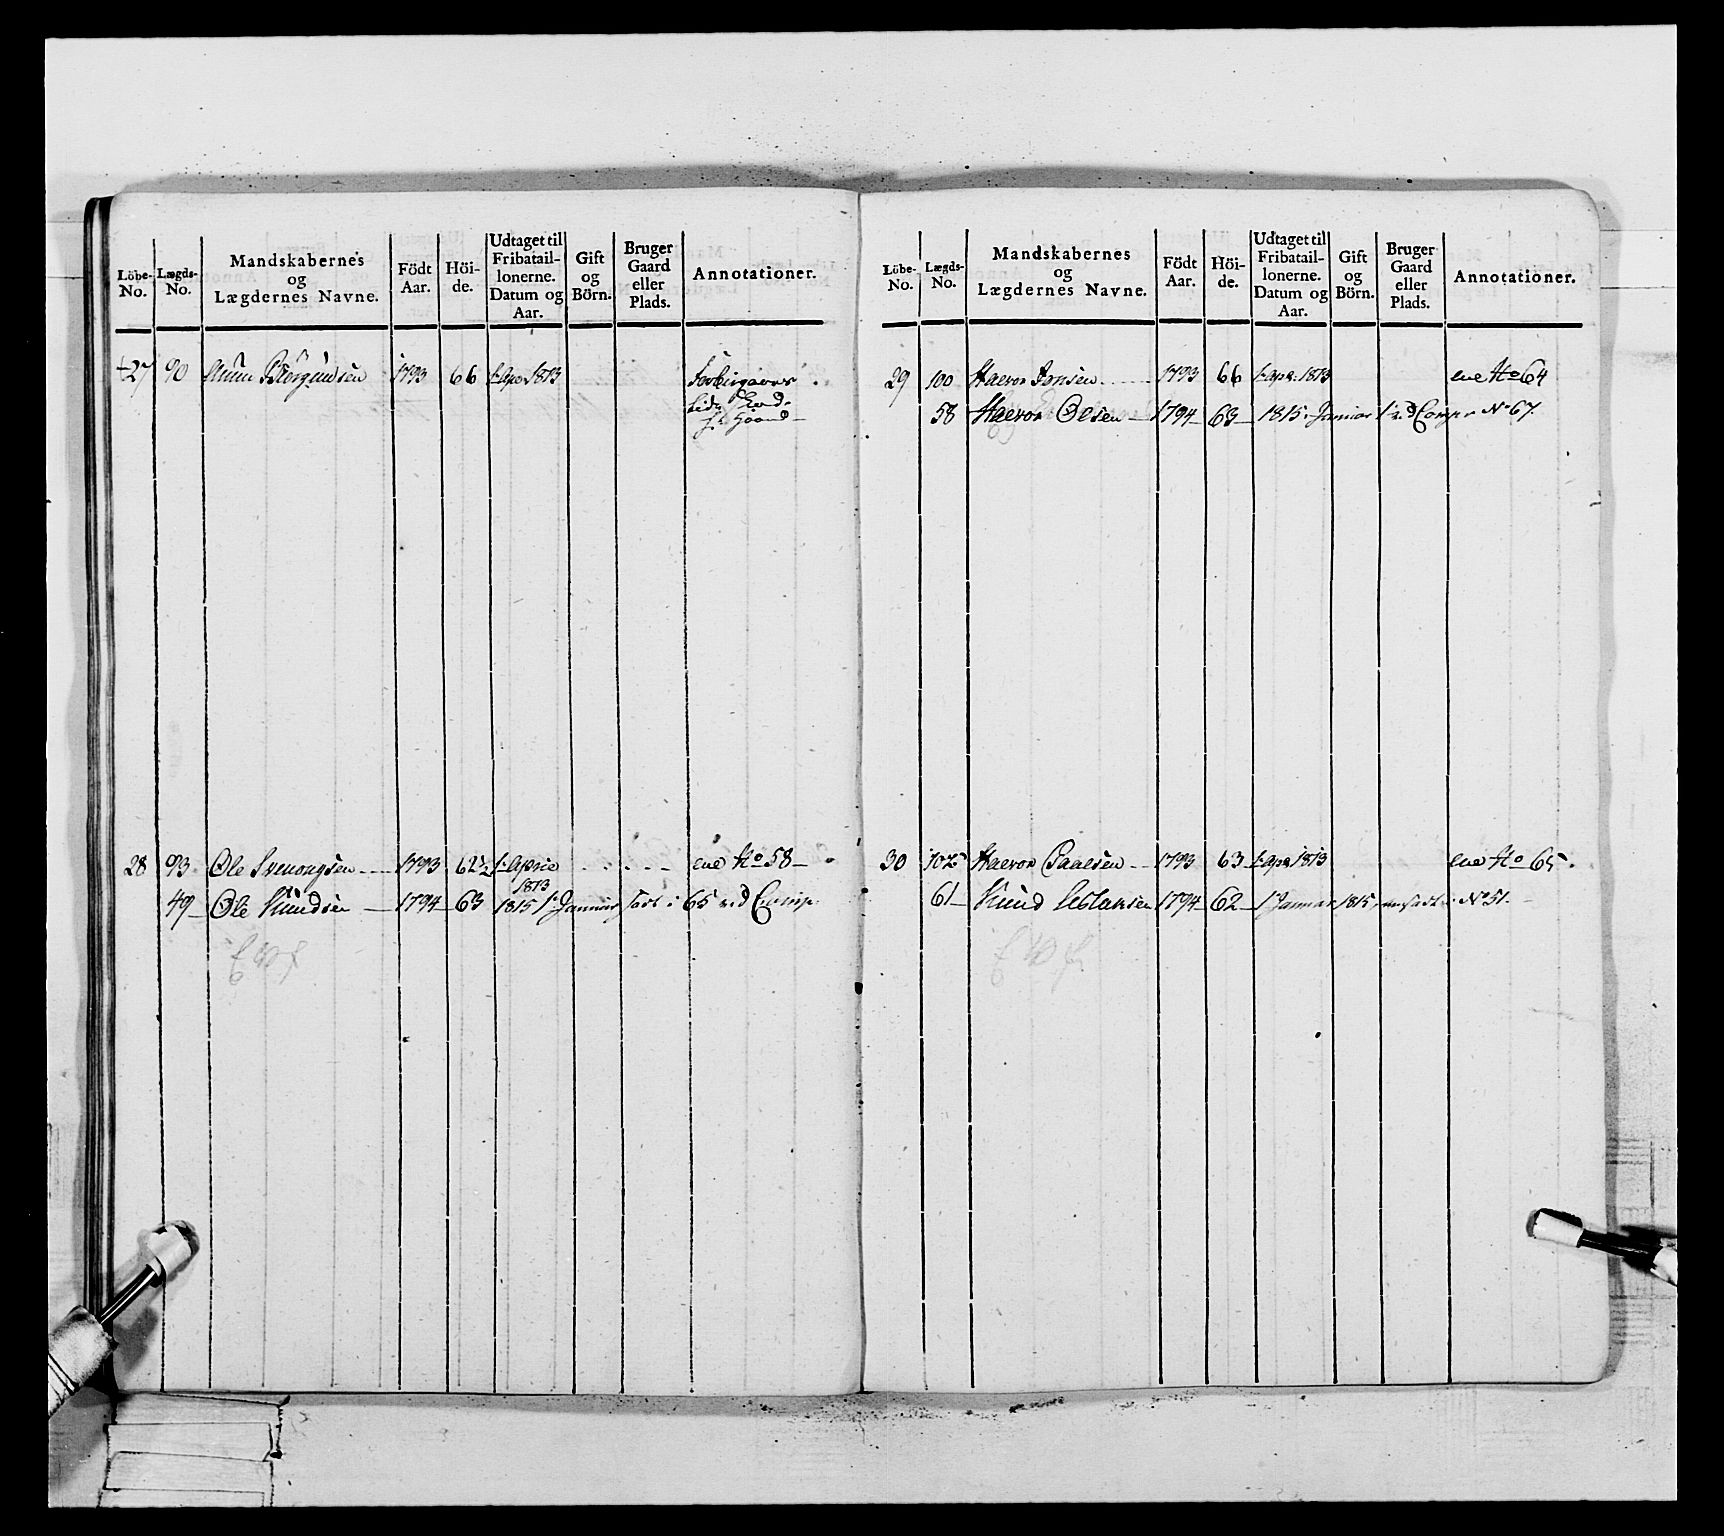 Löbe-No. Lægds-No. Mandskabernes og Lægdernes Navne. Födt Aar. Höi-de. Udtaget til Fribatail-lonerne. Datum og Aar. Gift og Börn. Bruger Gaard eller Plads. Annotationer.
27 90 Biörgundsen 1793 66 1. Apr. 1813
28 93 Ole 1793 62½ 1. April 1813 No 58
49 Ole Knudsen 1794 63 1815 1. Januar 65 v. d. Comp.
Löbe-No. Lægds-No. Mandskabernes og Lægdernes Navne. Födt Aar. Höi-de. Udtaget til Fribatail-lonerne. Datum og Aar. Gift og Börn. Bruger Gaard eller Plads. Annotationer.
29 100 Halvor Jonsen 1793 66 1. Apr. 1813 No 64
58 Halvor Olsen 1794 63 1815. Januar v. d. Comp. No 67.
30 102 Halvor Paalsen 1793 63 1. Apr. 1813 No 65.
61 Knud Aslaksen 1794 62 1 Januar 1815 No 51.